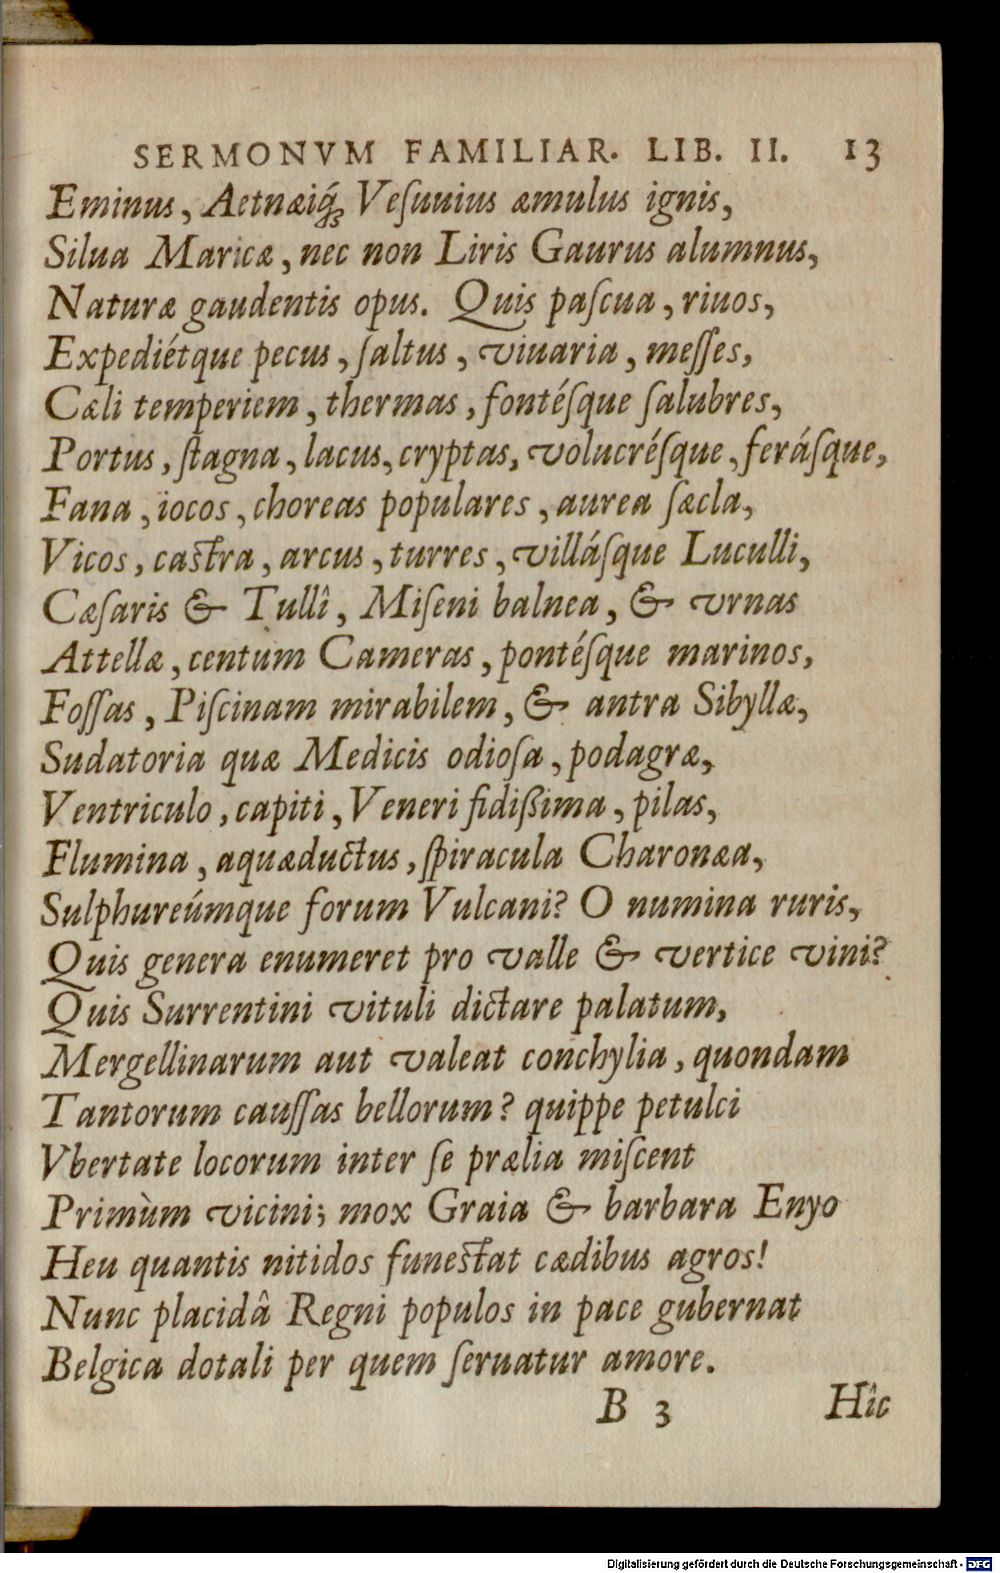 SERMONVM FAMILIAR. LIB. II. 13
Eminus, Aetnæiq́ꝫ Veſuuius æmulus ignis,
Silua Maricæ, nec non Liris Gaurus alumnus,
Naturæ gaudentis opus. Quis paſcua, riuos,
Expediétque pecus, ſaltus, viuaria, meſſes,
Cæli temperiem, thermas, fontéſque ſalubres,
Portus, ſtagna, lacus, cryptas, volucréſque, feráſque,
Fana, iocos, choreas populares, aurea ſæcla,
Vicos, caſtra, arcus, turres, villáſque Luculli,
Cæſaris & Tullî, Miſeni balnea, & vrnas
Attellæ, centum Cameras, pontéſque marinos,
Foſſas, Piſcinam mirabilem, & antra Sibyllæ,
Sudatoria quæ Medicis odioſa, podagræ,
Ventriculo, capiti, Veneri fidißima, pilas,
Flumina, aquæductus, ſpiracula Charonæa,
Sulphureúmque forum Vulcani? O numina ruris,
Quis genera enumeret pro valle & vertice vini?
Quis Surrentini vituli dictare palatum,
Mergellinarum aut valeat conchylia, quondam
Tantorum cauſſas bellorum? quippe petulci
Vbertate locorum inter ſe prælia miſcent
Primùm vicini; mox Graia & barbara Enyo
Heu quantis nitidos funeſtat cædibus agros!
Nunc placidâ Regni populos in pace gubernat
Belgica dotali per quem ſeruatur amore.
B 3 Hîc
Digitalisierung gefördert durch die Deutsche Forschungsgemeinschaft - DFG